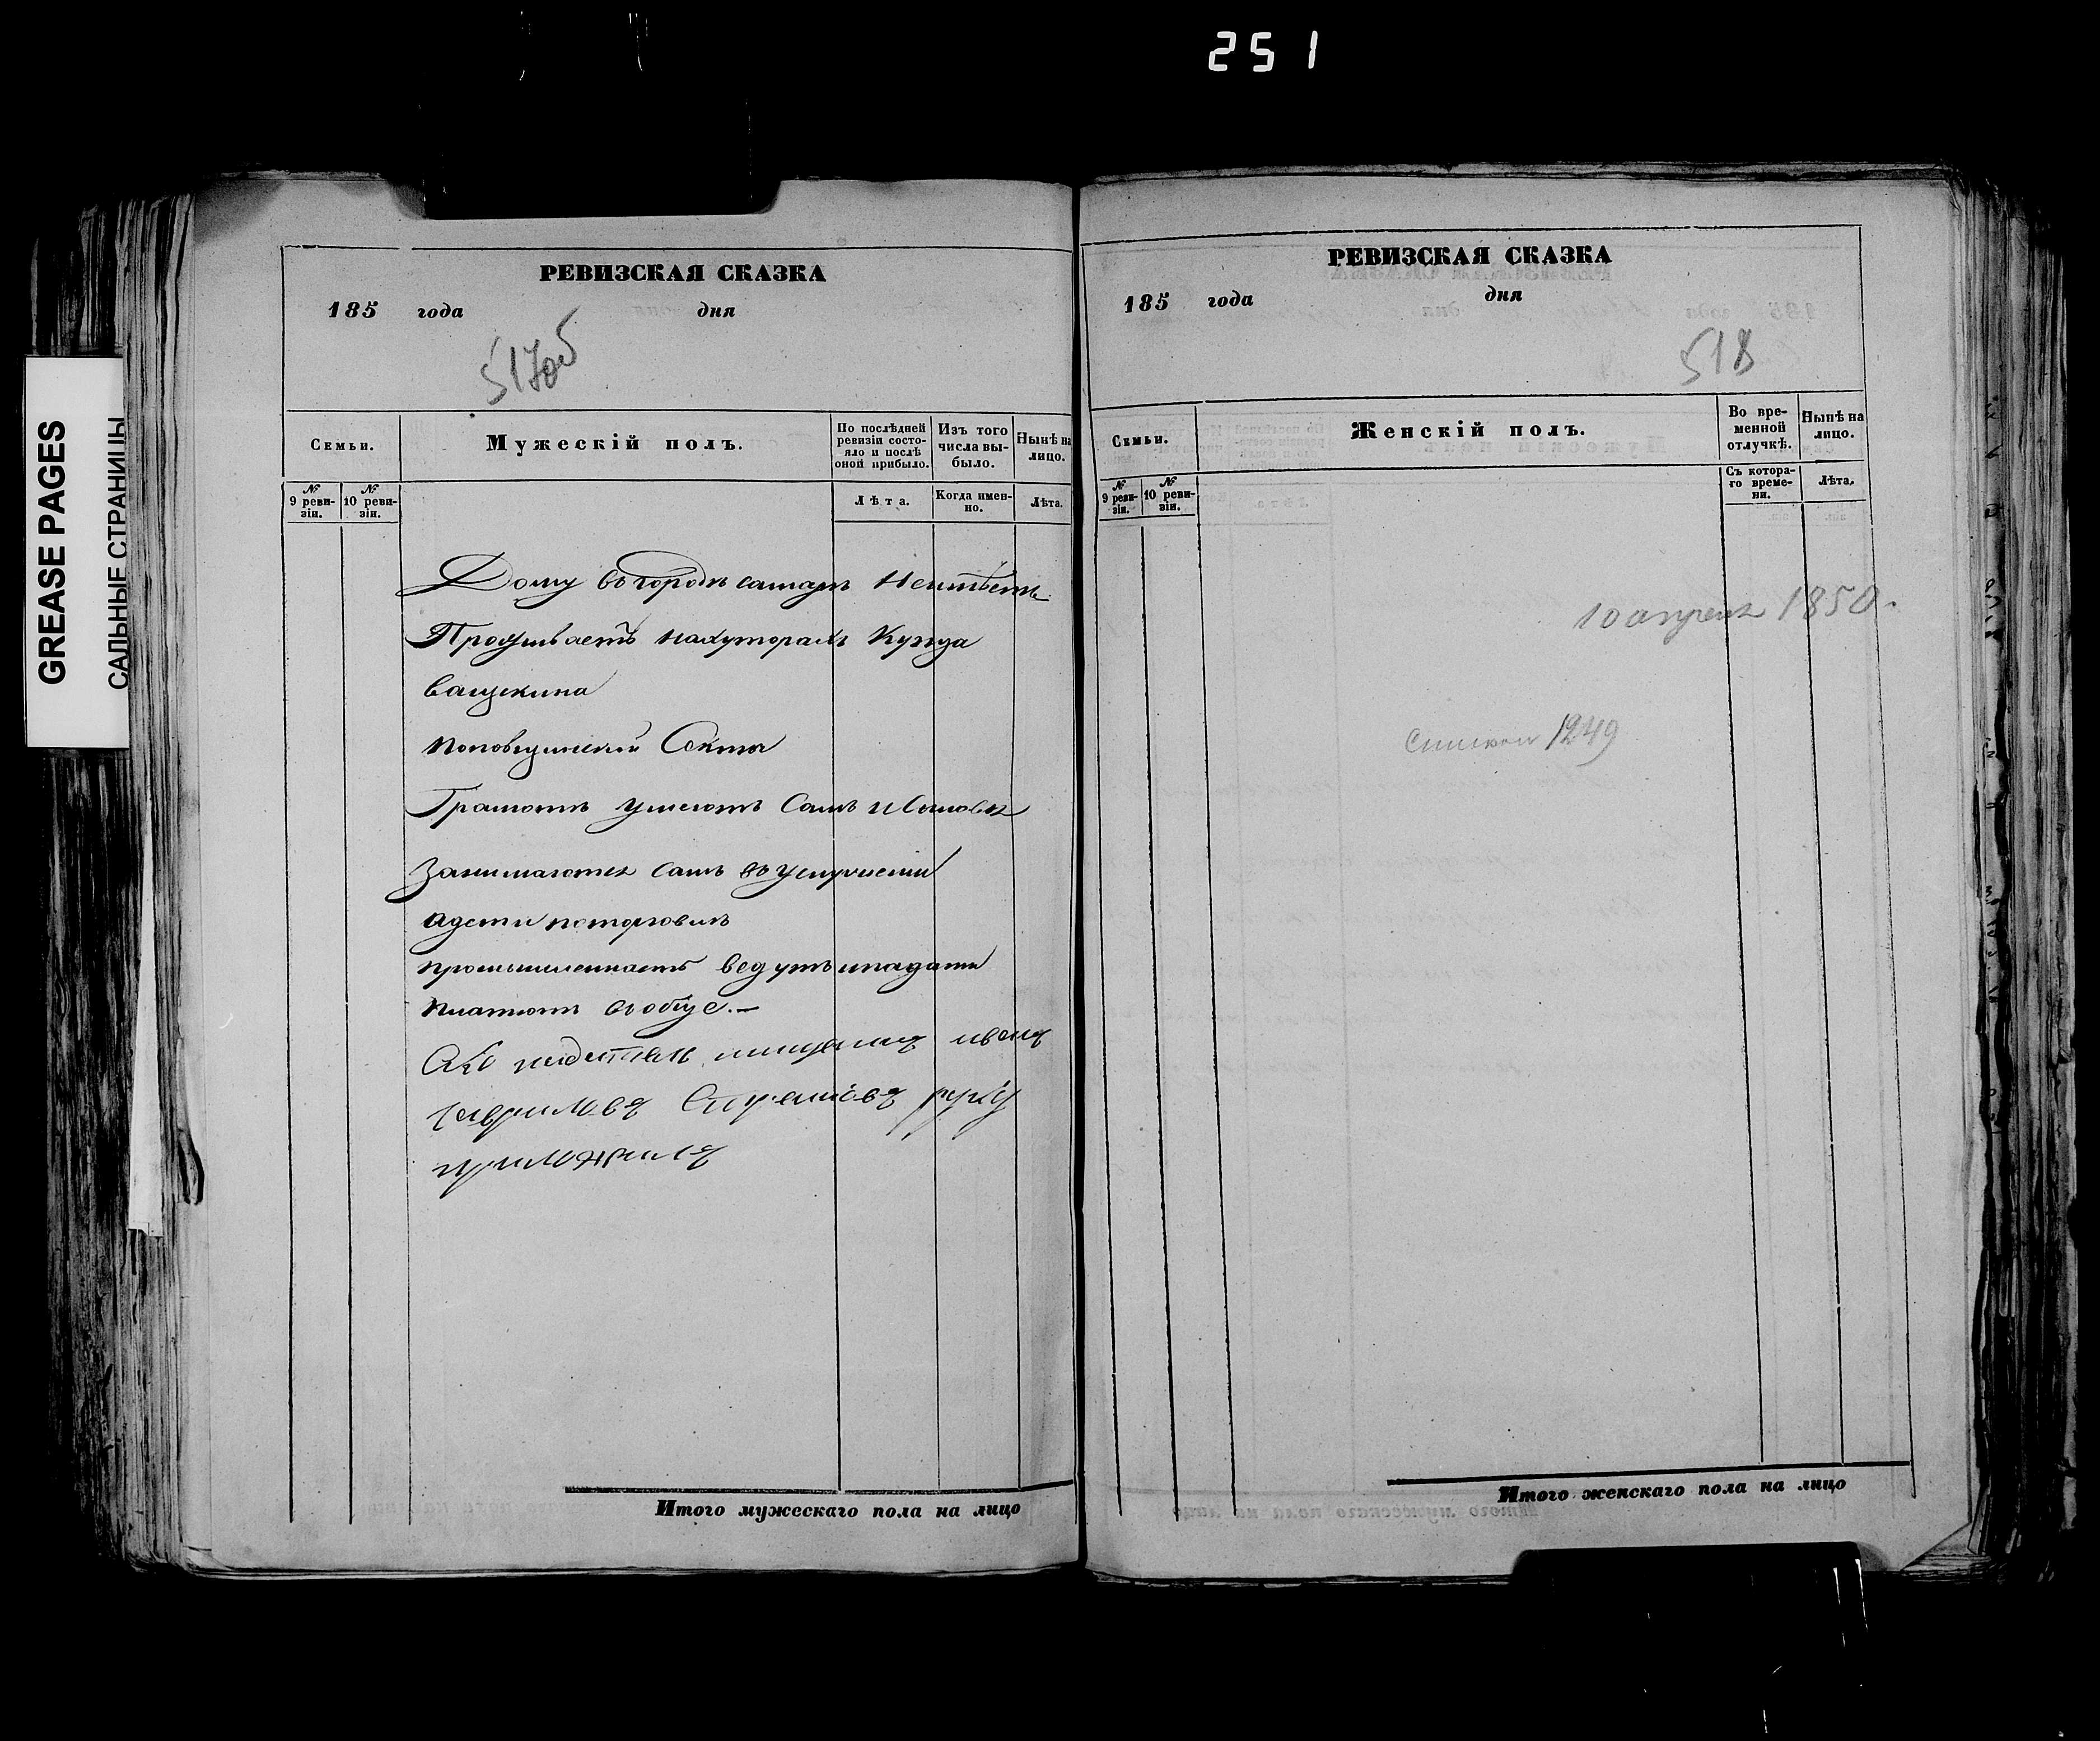 251
GREASE PAGES
САЛЬНЫЕ СТРАНИЦЫ
РЕВИЗСКАЯ СКАЗКА
185 года дня
517об
Семьи.
Мужескій полъ.
По послѣдней ревизіи состояло и послѣ оной прибыло.
Изъ того числа выбыло.
Нынѣ на лицо.
№ 9 ревизіи.
№ 10 ревизіи.
Лѣта.
Когда именно.
Лѣта.
Дому въ городѣ самарѣ Неимѣетъ
Проживаетъ нахуторахъ Купца
ващекина
поповщинской Секты
Грамотѣ умеютъ Самъ и
Занимаются самъ въ услужении
адети поторговлѣ
промышленность ведутъ иподати
платютъ вобще.–
мищенинъ иванъ
гавриловъ руку
приложилъ
Итого мужескаго пола на лицо
РЕВИЗСКАЯ СКАЗКА
185 года дня
518
Семьи.
Женскій полъ.
Во временной отлучкѣ.
Нынѣ на лицо.
№ 9 ревизіи.
№ 10 ревизіи.
Съ котораго времени.
Лѣта.
10 апреля 1850.
1249
Итого женскаго пола на лицо